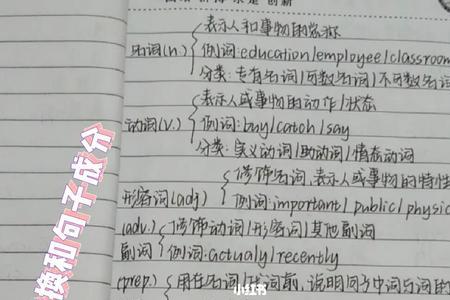 表示人和事物的名称
名词(n.) 例词:education/employee/classroom
分类:专有名词/可数名词/不可数名词
表示人或事物的动作/状态
动词(v.) 例词:buy/catch/say
分类:实义动词/助动词/情态动词
修饰名词,表示人或事物的特性
形容词(adj) 例词:important/public/physic
(adv.) 修饰动词/形容词/其他副词
副词 例词:actualy/recently
(prep.) 用在名词/代词前,说明
换和句子成分
小红书